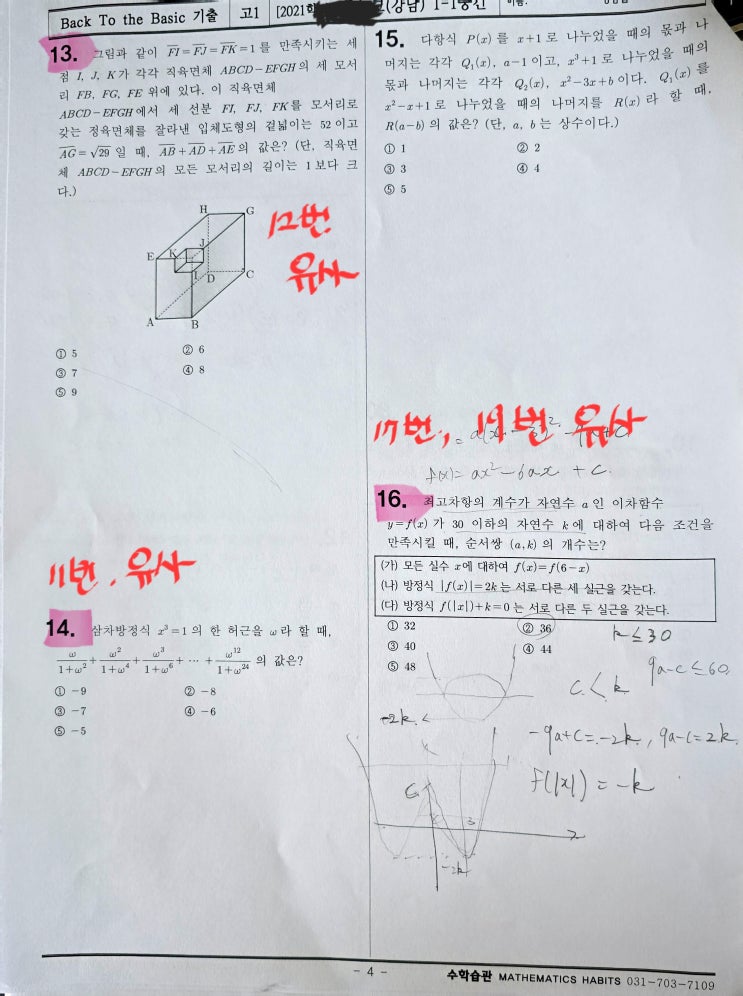 Back To the Basic 기출 고1 [2021학 (강남) 1-1중간 이름:
13. 그림과 같이 FI=FJ=FK=1를 만족시키는 세
점 I, J, K가 각각 직육면체 ABCD-EFGH의 세 모서
리 FB, FG, FE 위에 있다. 이 직육면체
ABCD-EFGH에서 세 선분 FI, FJ, FK를 모서리로
갖는 정육면체를 잘라낸 입체도형의 겉넓이는 52이고
AG=√29 일 때, AB+AD+AE의 값은? (단, 직육면
체 ABCD-EFGH의 모든 모서리의 길이는 1보다 크
다.)
H G
E K J
I D C
A B
12번
유사
① 5 ② 6
③ 7 ④ 8
⑤ 9
11번. 유사
14. 삼차방정식 x³=1의 한 허근을 ω라 할 때,
ω/(1+ω²)+ω²/(1+ω⁴)+ω³/(1+ω⁶)+⋯+ω¹²/(1+ω²⁴)의 값은?
① -9 ② -8
③ -7 ④ -6
⑤ -5
15. 다항식 P(x)를 x+1로 나누었을 때의 몫과 나
머지는 각각 Q₁(x), a-1이고, x³+1로 나누었을 때의
몫과 나머지는 각각 Q₂(x), x²-3x+b이다. Q₁(x)를
x²-x+1로 나누었을 때의 나머지를 R(x)라 할 때,
R(a-b)의 값은? (단, a, b는 상수이다.)
① 1 ② 2
③ 3 ④ 4
⑤ 5
17번, 19번 유사
f(x)=ax²-6ax+c.
16. 최고차항의 계수가 자연수 a인 이차함수
y=f(x)가 30 이하의 자연수 k에 대하여 다음 조건을
만족시킬 때, 순서쌍 (a, k)의 개수는?
(가) 모든 실수 x에 대하여 f(x)=f(6-x)
(나) 방정식 |f(x)|=2k는 서로 다른 세 실근을 갖는다.
(다) 방정식 f(|x|)+k=0는 서로 다른 두 실근을 갖는다.
① 32 ② 36
③ 40 ④ 44
⑤ 48
k≤30
9a-c≤60
c<k
-2k
-9a+c=-2k, 9a-c=2k
f(|x|)=-k
3
-2k
- 4 -
수학습관 MATHEMATICS HABITS 031-703-7109